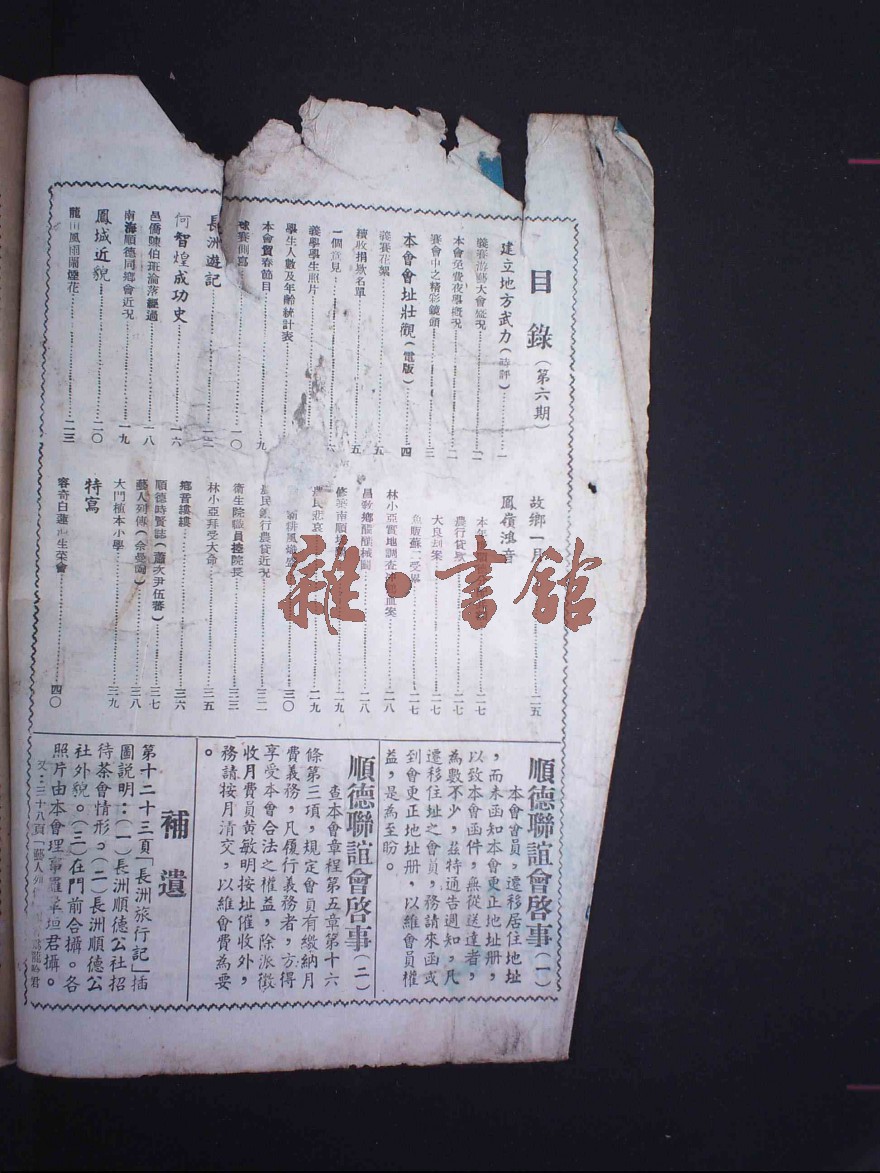 目錄(第六期)
建立地方武力(時評)……一
義賽游藝大會盛況……二
本會免費夜學概況……二
賽會中之精彩鏡頭……三
本會會址壯觀(電版)……四
義賽花絮……五
續收捐欵名單……五
一個意見……六
義學學生照片
學生人數及年齡統計表
本會賀春節目……九
球賽側寫……一〇
長洲遊記……一二
何智煌成功史……一六
邑僑陳伯班淪落經過……一八
南海順德同鄉會近況……一九
鳳城近貌……二〇
龍山風雨鬧煙花……二三
故鄉一月……二五
鳳嶺鴻音
本年……二七
農行貸欵……二七
大良刦案……二七
魚販蘇二受累……二七
林小亞實地調查血案……二八
昌教鄉醞釀械鬪……二八
修築南順……二九
農民悲哀……二九
耕風熾盛……三〇
農民銀行農貸近況……三二
衞生院職員控院長……三三
林小亞拜受大命……三五
鄉音縷縷……三六
順德時賢誌(蕭次尹伍蕃)……三七
藝人列傳(余曼)……三八
大門植本小學……三九
特寫
容奇白蓮洞生菜會……四〇
順德聯誼會啓事(一)
本會會員,遷移居住地址
,而未函知本會更正地址册,
以致本會函件,無從送達者,
為數不少,茲特通告週知,凡
遷移住址之會員,務請來函或
到會更正地址册,以維會員權
益,是為至盼。
順德聯誼會啓事(二)
查本會章程第五章第十六
條第三項,規定會員有繳納月
費義務,凡履行義務者,方得
享受本會合法之權益,除派徵
收月費員黃敏明按址催收外,
務請按月清交,以維會費為要
。
補遺
第十二十三頁「長洲旅行記」插
圖說明:(一)長洲順德公社招
待茶會情形。(二)長洲順德公
社外貌。(三)在門前合攝。各
照片由本會理事羅草垣君攝。
又:三十八頁「藝人列
雜·書館